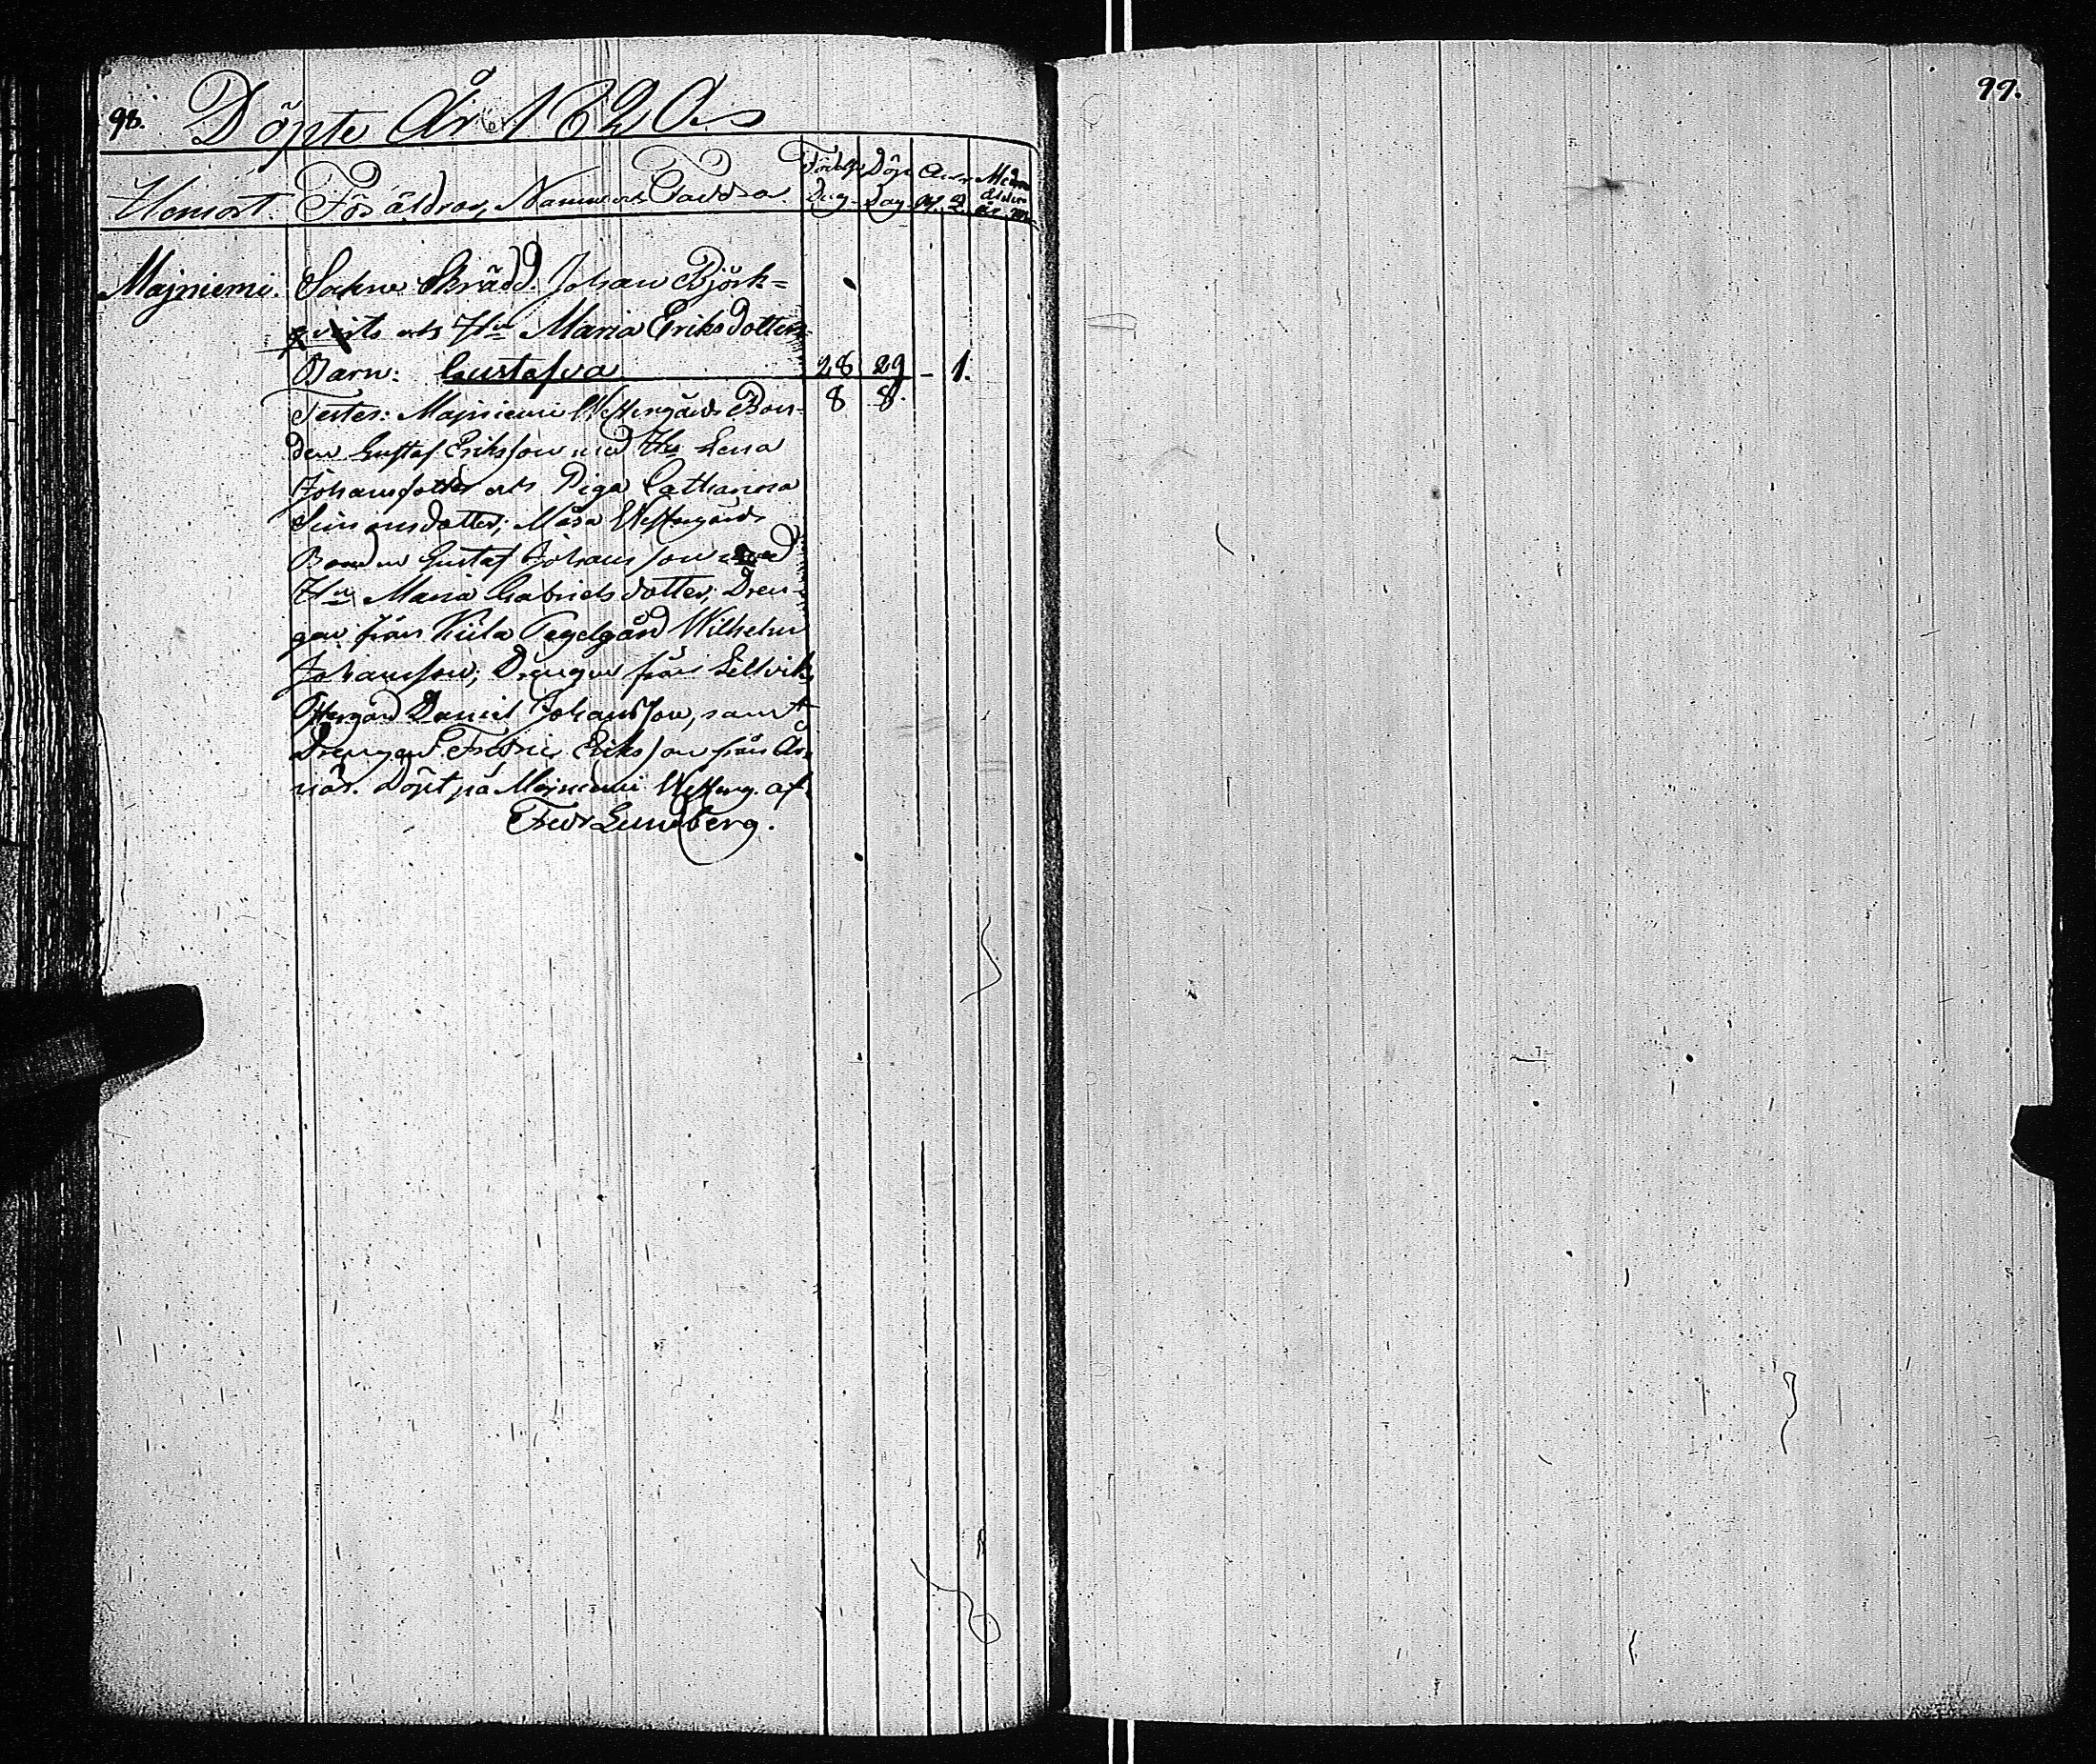 98. Döpte År 1820.
Hemort. Föräldrar, Namn och Faddra. Födelse Dag. Döpe Dag.
Majniemi. Sokne Skrädd. Johan Björk=
qvists och Hu Maria Eriksdotters
Barn: Gustafva 28 29 - 1.
Testes: Majniemi Westergårds Bon- 8 8.
den Gustaf Eriksson med Hu Lena
Johansdotter och Piga Catharina
Simonsdotter; Måsa Westergårds
Bonden Gustaf Johansson med
Hu Maria Gabrielsdotter, Dren-
gen från Kiila Tegelgård Wilhelm
Johansson; Drengen från Lillviks
Östergård Daniel Johansson, samt
Drengen Fredric Eriksson från
Döpt på Majniemi Westerg. af
Lundberg.
99.